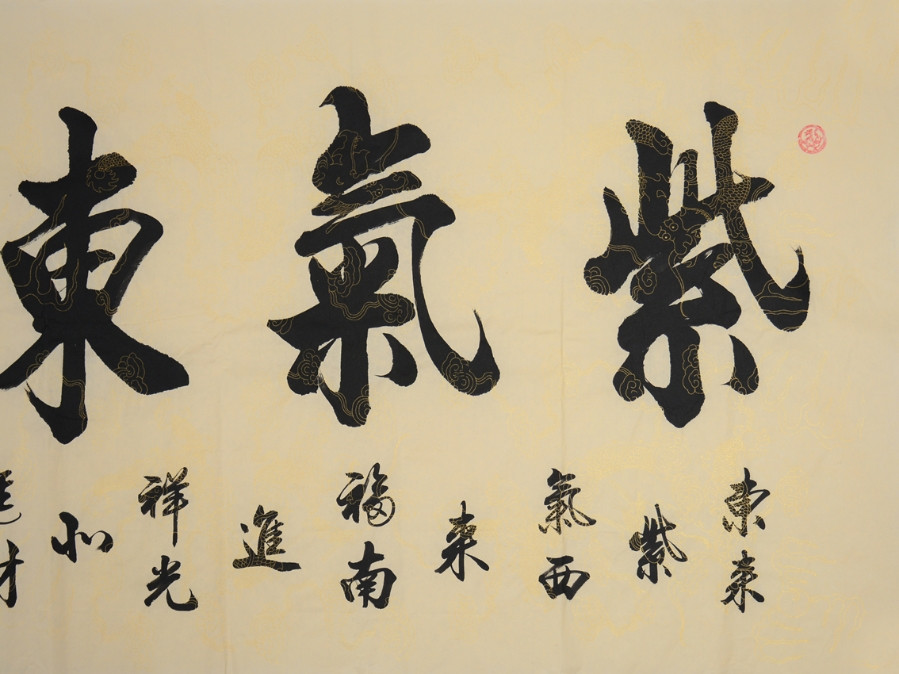 紫氣東
東來
紫
氣西
來
福南
進
祥光
北